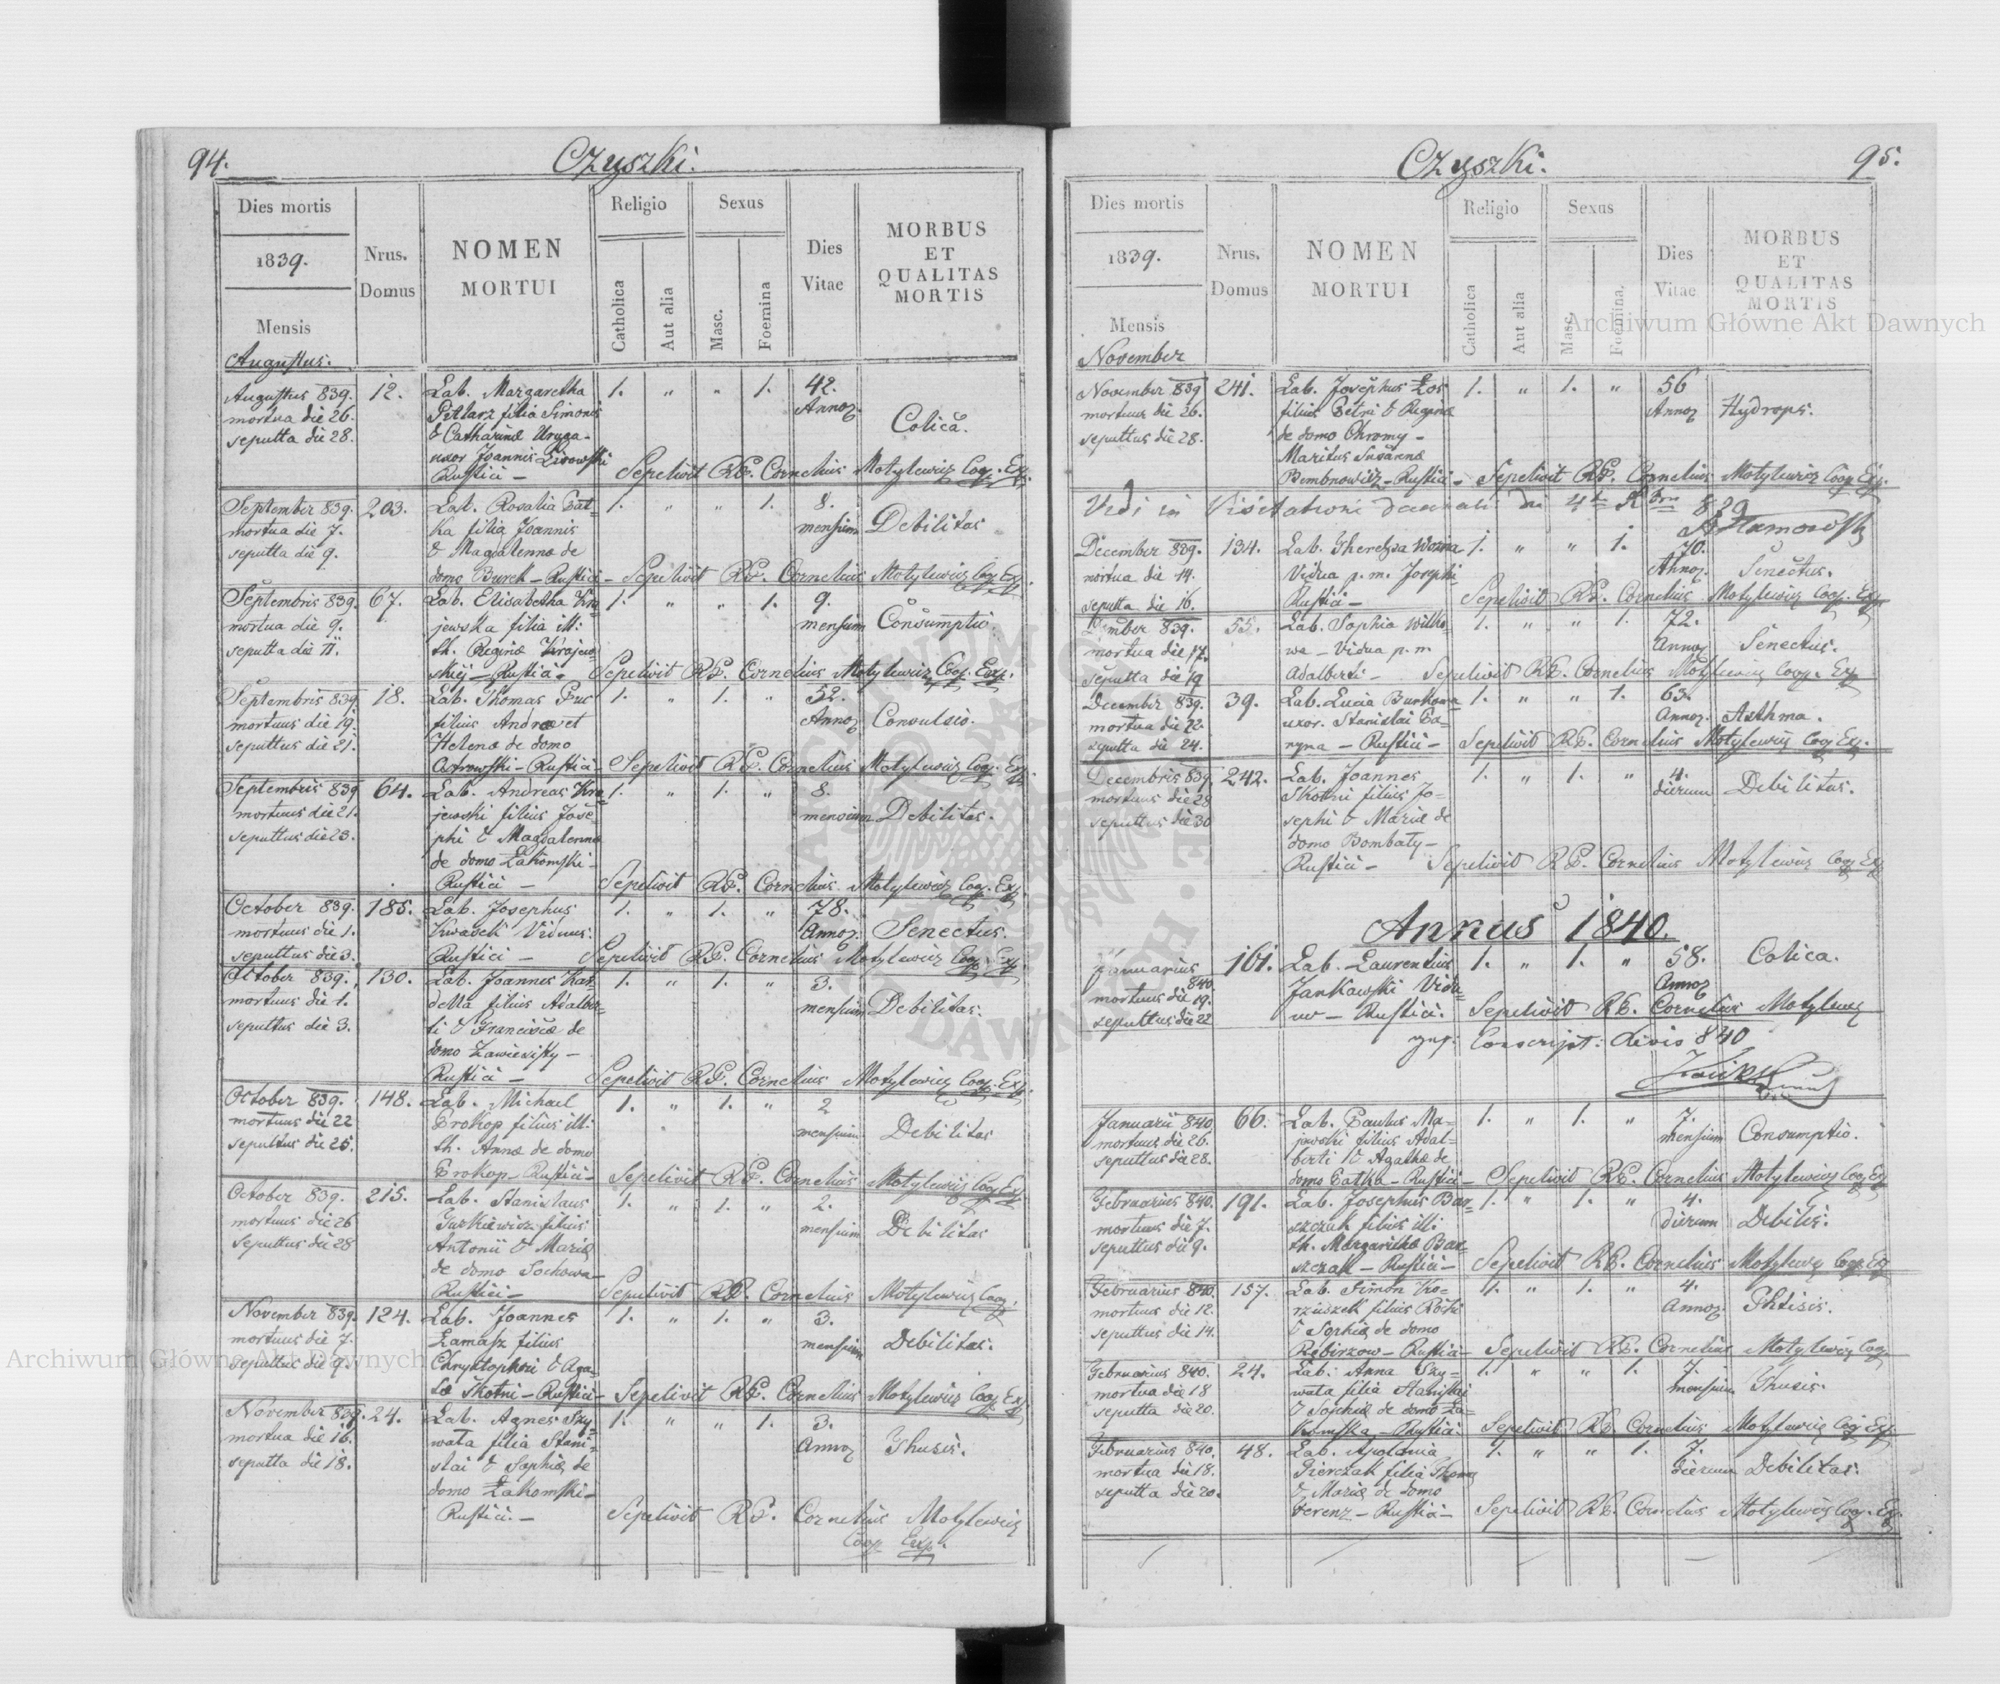 94.
Czyszki.
Dies mortis
1839.
Mensis
Augustus.
Nrus.
Domus
NOMEN
MORTUI
Religio
Catholica
Aut alia
Sexus
Masc.
Foemina
Dies
Vitae
MORBUS
ET
QUALITAS
MORTIS
Augustus 839. 12. Lab. Margaretha 1. " " 1. 42.
mortua die 26. filia Simonis Annoz.
sepulta die 28. & Catharinæ Colica.
uxor Joannis Lisowski
Rustici – Sepelivit RP. Cornelius Motylewicz Coop. Exp.
September 839. 203. Lab. Rosalia Pat= 1. " " 1. 8.
mortua die 7. ka filia Joannis mensium Debilitas
sepulta die 9. & Magdalennæ de
domo Burek – Rustici – Sepelivit RP. Cornelius Motylewicz Coop. Exp.
Septembris 839. 67. Lab. Elisabetha Kra= 1. " " 1. 9.
mortua die 9. jewska filia ill: mensium Consumptio.
sepulta die 11. th. Reginæ Krajew=
skiej – Rustici – Sepelivit RP. Cornelius Motylewicz Coop. Exp.
Septembris 839. 18. Lab. Thomas 1. " 1. " 52.
mortuus die 19. filius Andreæ et Annoz Convulsio.
sepultus die 21. Helenæ de domo
Ostrowski – Rustici – Sepelivit RP. Cornelius Motylewicz Coop. Exp.
Septembris 839 64. Lab. Andreas Kra= 1. " 1. " 8.
mortuus die 21. jewski filius Jose= mensium Debilitas.
sepultus die 23. phi & Magdalennæ
de domo Łakomski –
Rustici – Sepelivit RP. Cornelius Motylewicz Coop. Exp.
October 839. 185. Lab. Josephus 1. " 1. " 78.
mortuus die 1. Kwasek Viduus. Annoz. Senectus.
sepultus die 3. Rustici – Sepelivit RP. Cornelius Motylewicz Coop. Exp.
October 839. 130. Lab. Joannes 1. " 1. " 3.
mortuus die 1. filius Adalber= mensium Debilitas.
sepultus die 3. ti & Franciscæ de
domo
Rustici – Sepelivit RP. Cornelius Motylewicz Coop. Exp.
October 839. 148. Lab. Michael 1. " 1. " 2
mortuus die 22 Prokop filius ill: mensium Debilitas
sepultus die 25. th. Annæ de domo
Prokop – Rustici – Sepelivit RP. Cornelius Motylewicz Coop. Exp.
October 839. 215. Lab. Stanislaus 1. " 1. " 2.
mortuus die 26 filius mensium Debilitas
Sepultus die 28 Antonii & Mariæ
de domo Sochowa –
Rustici – Sepelivit RP. Cornelius Motylewicz Coop.
November 839. 124. Lab. Joannes 1. " 1. " 3.
mortuus die 7. Łamasz filius mensium Debilitas.
sepultus die 9. Chrystophori & Aga=
Skotni – Rustici – Sepelivit RP. Cornelius Motylewicz Coop. Exp.
November 839. 24. Lab. Agnes Szy= 1. " " 1. 3.
mortua die 16. wata filia Stani= Annoz
sepulta die 18. slai & Sophiæ de
domo Łakomski –
Rustici. – Sepelivit RP. Cornelius Motylewicz
Coop. Exp.
95.
Czyszki.
Dies mortis
1839.
Mensis
November
Nrus.
Domus
NOMEN
MORTUI
Religio
Catholica
Aut alia
Sexus
Masc.
Foemina.
Dies
Vitae
MORBUS
ET
QUALITAS
MORTIS
November 839 241. Lab. Josephus Łos 1. " 1. " 56
mortuus die 26. filius Petri & Reginæ Annoz Hydrops.
sepultus die 28. de domo Chromy –
Maritus Susannæ
Rustici – Sepelivit RP. Cornelius Motylewicz Coop. Exp.
Vidi in Visitatione decanali die 4ta Xbris 839
December 839. 134. Lab. Woźna 1. " " 1. 70.
mortua die 14. Vidua p. m. Josephi Annoz. Senectus.
sepulta die 16. Rustici – Sepelivit RP. Cornelius Motylewicz Coop. Exp.
839. 55. Lab. Sophia Witko= 1. " " 1. 72.
mortua die 17. wa – Vidua p. m Annoz Senectus.
sepulta die 19 Adalberti – Sepelivit RP. Cornelius Motylewicz Coop. Exp.
December 839. 39. Lab. Lucia 1. " " 1. 63.
mortua die 22. uxor. Stanislai Annoz. Asthma.
sepulta die 24. Rustici – Sepelivit RP. Cornelius Motylewicz Coop. Exp.
Decembris 839. 242. Lab. Joannes 1. " 1. " 4.
mortuus die 28 Skotni filius Jo= dierum Debilitas.
sepultus die 30 sephi & Mariæ de
domo Bombaty –
Rustici – Sepelivit RP. Cornelius Motylewicz Coop. Exp.
Annus 1840.
Januarius 840 161. Lab. Laurentius 1. " 1. " 58. Colica.
mortuus die 19. Jankowski Vidu= Annoz
sepultus die 22 us – Rustici. Sepelivit RP. Cornelius Motylewicz
Conscript: 840
Januarii 840 66. Lab. Paulus Ma= 1. " 1. " 7.
mortuus die 26. jewski filius Adal= mensium Consumptio.
sepultus die 28. berti & Agathæ de
domo Patka – Rustici – Sepelivit RP. Cornelius Motylewicz Coop. Exp
Februarius 840. 191. Lab. Josephus Bar= 1. " 1. " 4.
mortuus die 7. szczak filius ill: dierum Debilis.
sepultus die 9. th. Margarithæ Bar=
szczak – Rustici – Sepelivit RP. Cornelius Motylewicz Coop. Exp
Februarius 840. 157. Lab. Simon Ko= 1. " 1. " 4.
mortuus die 12. rzuszek filius Rochi Annoz Phtisis.
sepultus die 14. & Sophiæ de domo
Rustici – Sepelivit RP. Cornelius Motylewicz Coop
Februarius 840. 24. Lab. Anna Szy= 1. " " 1. 7.
mortua die 18 wata filia Stanislai mensium
sepulta die 20. & Sophiæ de domo Ła=
komska – Rustici. Sepelivit RP. Cornelius Motylewicz Coop. Exp.
Februarius 840. 48. Lab. Apolonia 1. " " 1. 7.
mortua die 18. Pierczak filia Thomæ dierum Debilitas.
sepulta die 20. & Mariæ de domo
Ferenz – Rustici – Sepelivit RP. Cornelius Motylewicz Coop. Exp.
Archiwum Główne Akt Dawnych
Archiwum Główne Akt Dawnych